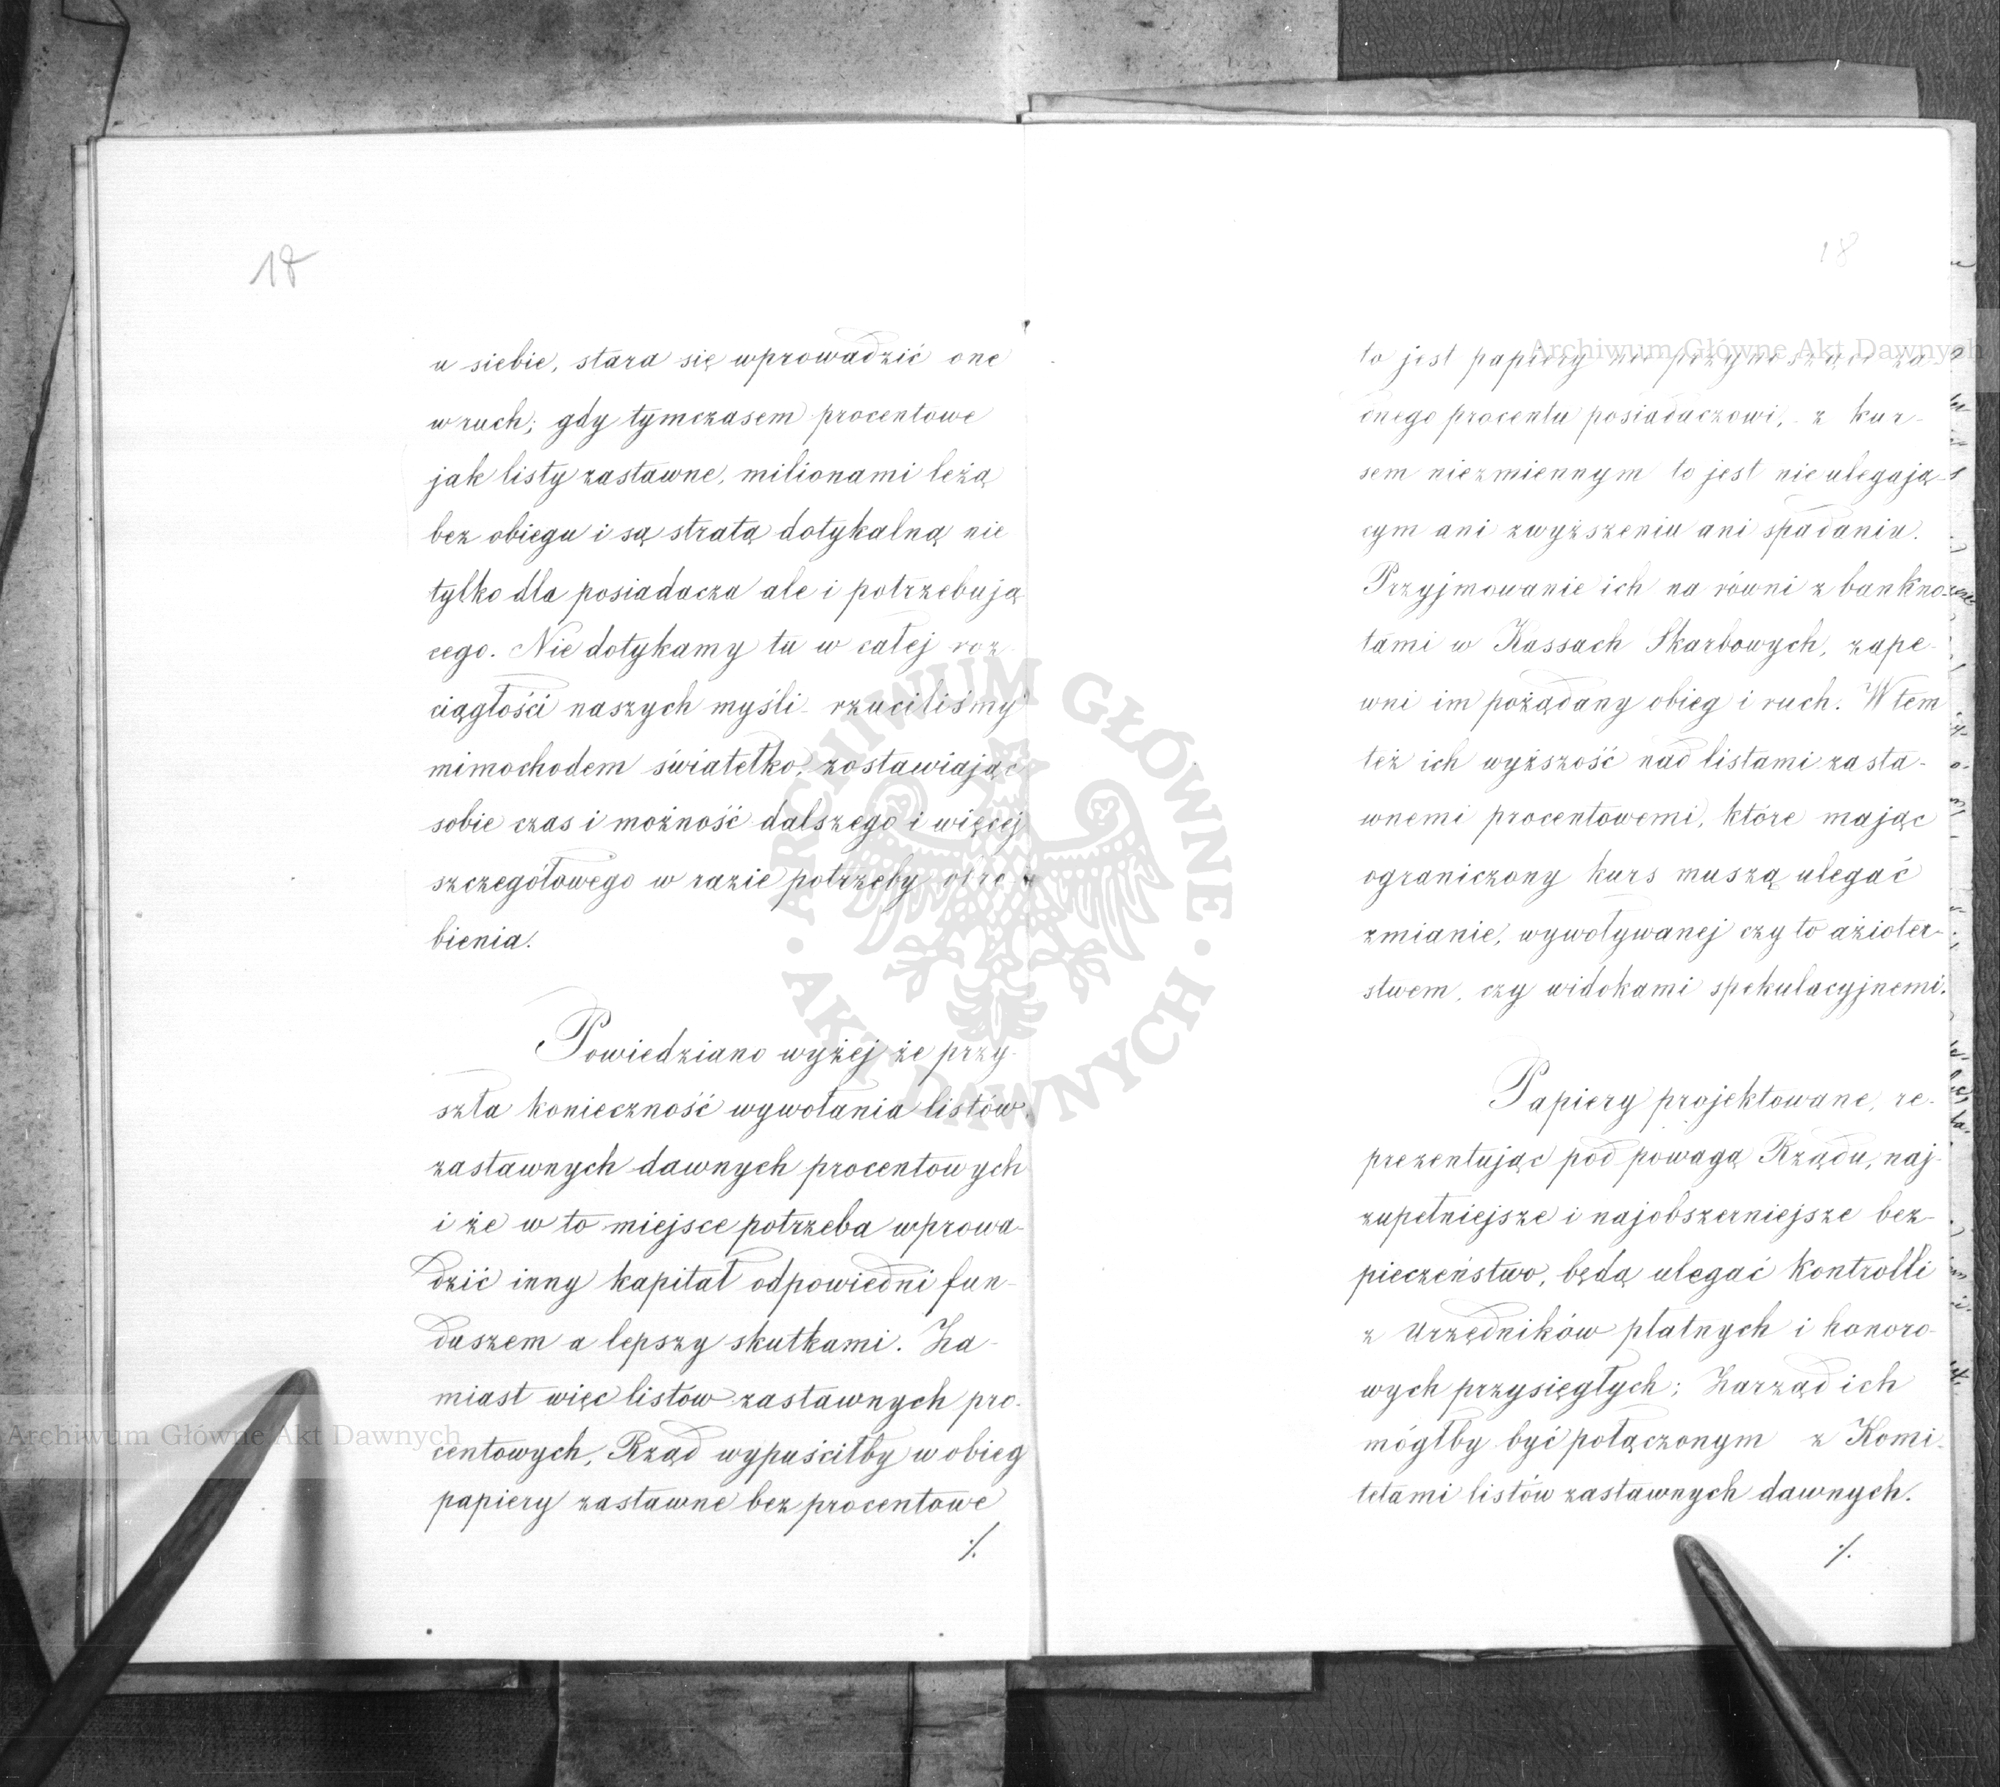 18
u siebie, stara się wprowadzić one
w ruch; gdy tymczasem procentowe
jak listy zastawne, milionami leżą
bez obiegu i są stratą dotykalną nie
tylko dla posiadacza ale i potrzebują
cego. Nie dotykamy tu w całej roz-
ciągłości naszych myśli - rzuciliśmy
mimochodem światełko, zostawiając
sobie czas i możność dalszego i więcej
szczegółowego w razie potrzeby obro-
bienia.
Powiedziano wyżej że przy-
szła konieczność wywołania listów
zastawnych dawnych procentowych
i że w to miejsce potrzeba wprowa-
dzić inny kapitał odpowiedni fun-
duszem a lepszy skutkami. Za-
miast więc listów zastawnych pro-
centowych, Rząd wypuściłby w obieg
papiery zastawne bez procentowe
./.
18
to jest papiery nie przynoszące ża-
dnego procentu posiadaczowi, z kur-
sem niezmiennym to jest nie ulegają-
cym ani zwyższeniu ani spadaniu.
Przyjmowanie ich na równi z bankno-
tami w Kassach Skarbowych, zape-
wni im pożądany obieg i ruch. W tem
też ich wyższość nad listami zasta-
wnemi procentowemi, które mając
ograniczony kurs muszą ulegać
zmianie, wywoływanej czy to ażioter-
stwem, czy widokami spekulacyjnemi.
Papiery projektowane, re-
prezentując pod powagą Rządu, naj-
zupełniejsze i najobszerniejsze bez-
pieczeństwo, będą ulegać kontrolli
z Urzędników płatnych i honoro-
wych przysięgłych; Zarząd ich
mógłby być połączonym z Komi-
tetami listów zastawnych dawnych.
./.
Archiwum Główne Akt Dawnych
Archiwum Główne Akt Dawnych
ARCHIWUM GŁÓWNE
AKT DAWNYCH